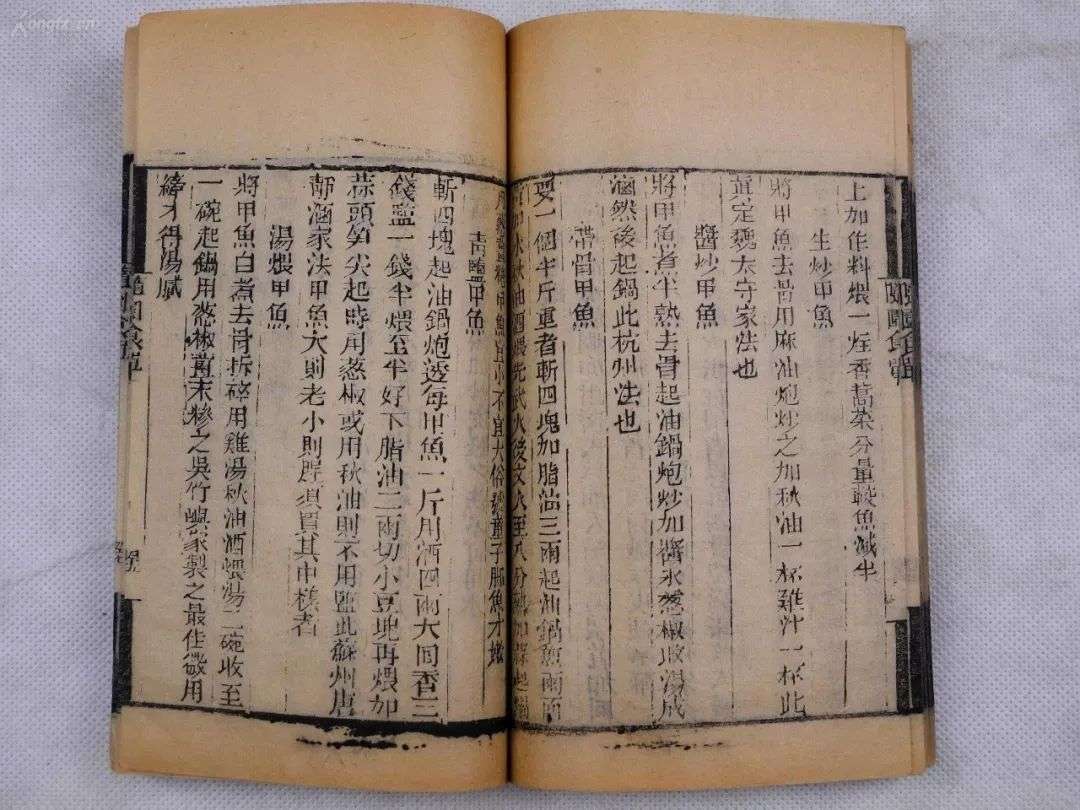 上加作料煨一炷香蒿菜分量較魚減半
生炒甲魚
將甲魚去骨用麻油炮炒之加秋油一杯雞汁一杯此
真定魏太守家法也
醬炒甲魚
將甲魚煮半熟去骨起油鍋炮炒加醬水葱椒收湯成
滷然後起鍋此杭州法也
帶骨甲魚
要一個半斤重者斬四塊加脂油三兩起油鍋煎兩面
黃加水秋油酒煨先武火後文火至八分熟加蒜起鍋
用葱薑糖甲魚宜小不宜大俗號童子脚魚才嫩
青鹽甲魚
斬四塊起油鍋炮透每甲魚一斤用酒四兩大茴香三
錢鹽一錢半煨至半好下脂油二兩切小豆塊再煨加
蒜頭笋尖起時用葱椒或用秋油則不用鹽此蘇州唐
靜涵家法甲魚大則老小則腥須買其中樣者
湯煨甲魚
將甲魚白煮去骨拆碎用雞湯秋油酒煨湯二碗收至
一碗起鍋用葱椒薑末糝之吳竹嶼家製之最佳微用
縴才得湯膩
隨園食單